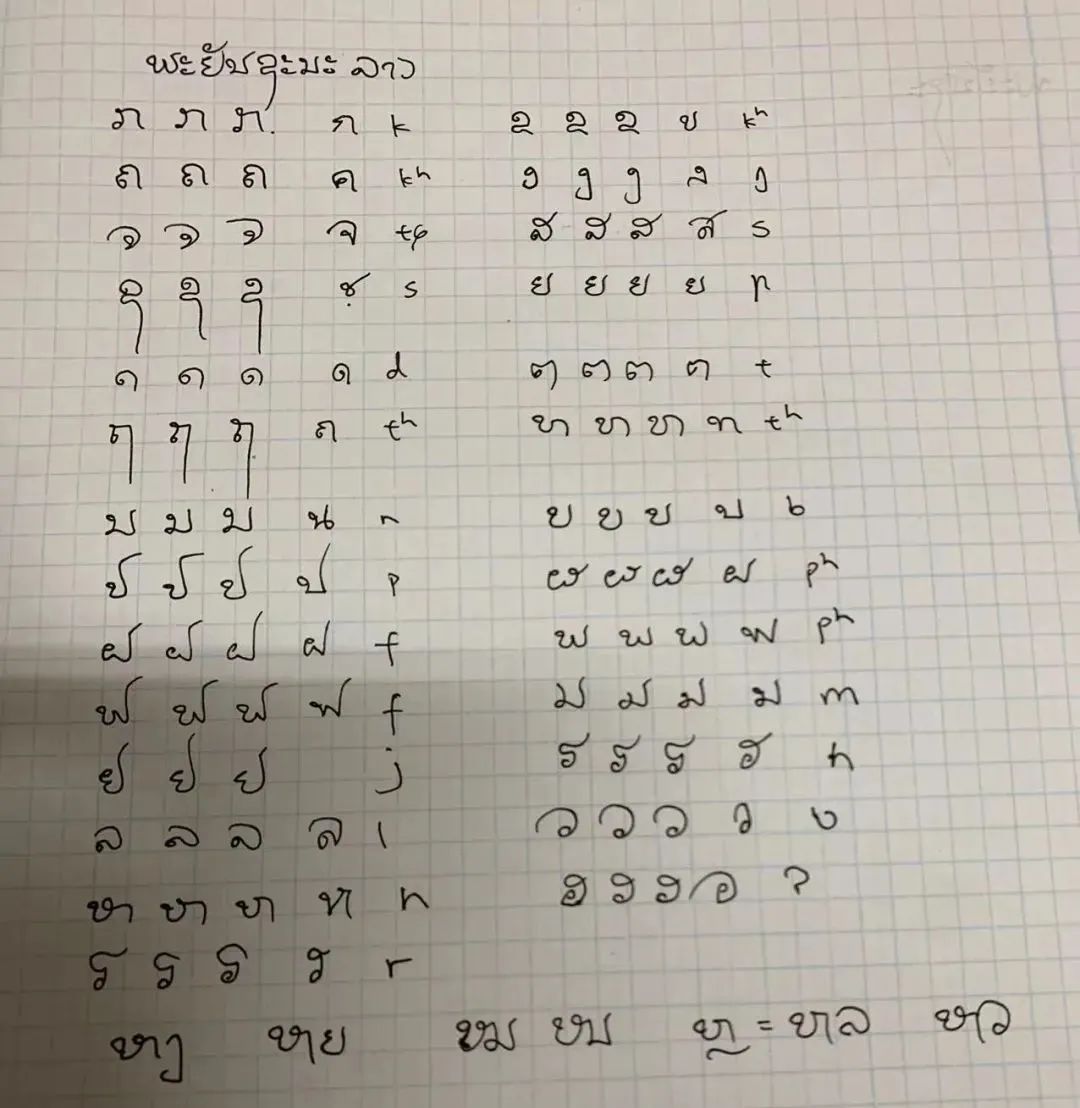 ພະຢັນຊະນະ ລາວ
ກ ກ ກ ก k ຂ ຂ ຂ ข kʰ
ຄ ຄ ຄ ค kʰ ງ ງ ງ ง ŋ
ຈ ຈ ຈ จ tɕ ສ ສ ສ ส s
ຊ ຊ ຊ ซ s ຍ ຍ ຍ ย ɲ
ດ ດ ດ ด d ຕ ຕ ຕ ต t
ຖ ຖ ຖ ถ tʰ ທ ທ ທ ท tʰ
ນ ນ ນ น n ບ ບ ບ บ b
ປ ປ ປ ป p ຜ ຜ ຜ ผ pʰ
ຝ ຝ ຝ ฝ f ພ ພ ພ พ pʰ
ຟ ຟ ຟ ฟ f ມ ມ ມ ม m
ຢ ຢ ຢ j ຮ ຮ ຮ ฮ h
ລ ລ ລ ล l ວ ວ ວ ว ʋ
ຫ ຫ ຫ ห h ອ ອ ອ อ ʔ
ຣ ຣ ຣ ร r
ຫງ ຫຍ ໝ ໜ ຫຼ = ຫລ ຫວ